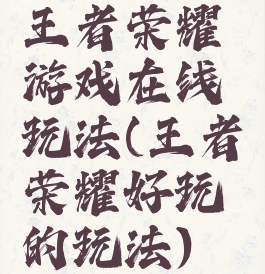 王者荣耀
游戏在线
玩法(王者
荣耀好玩
的玩法)